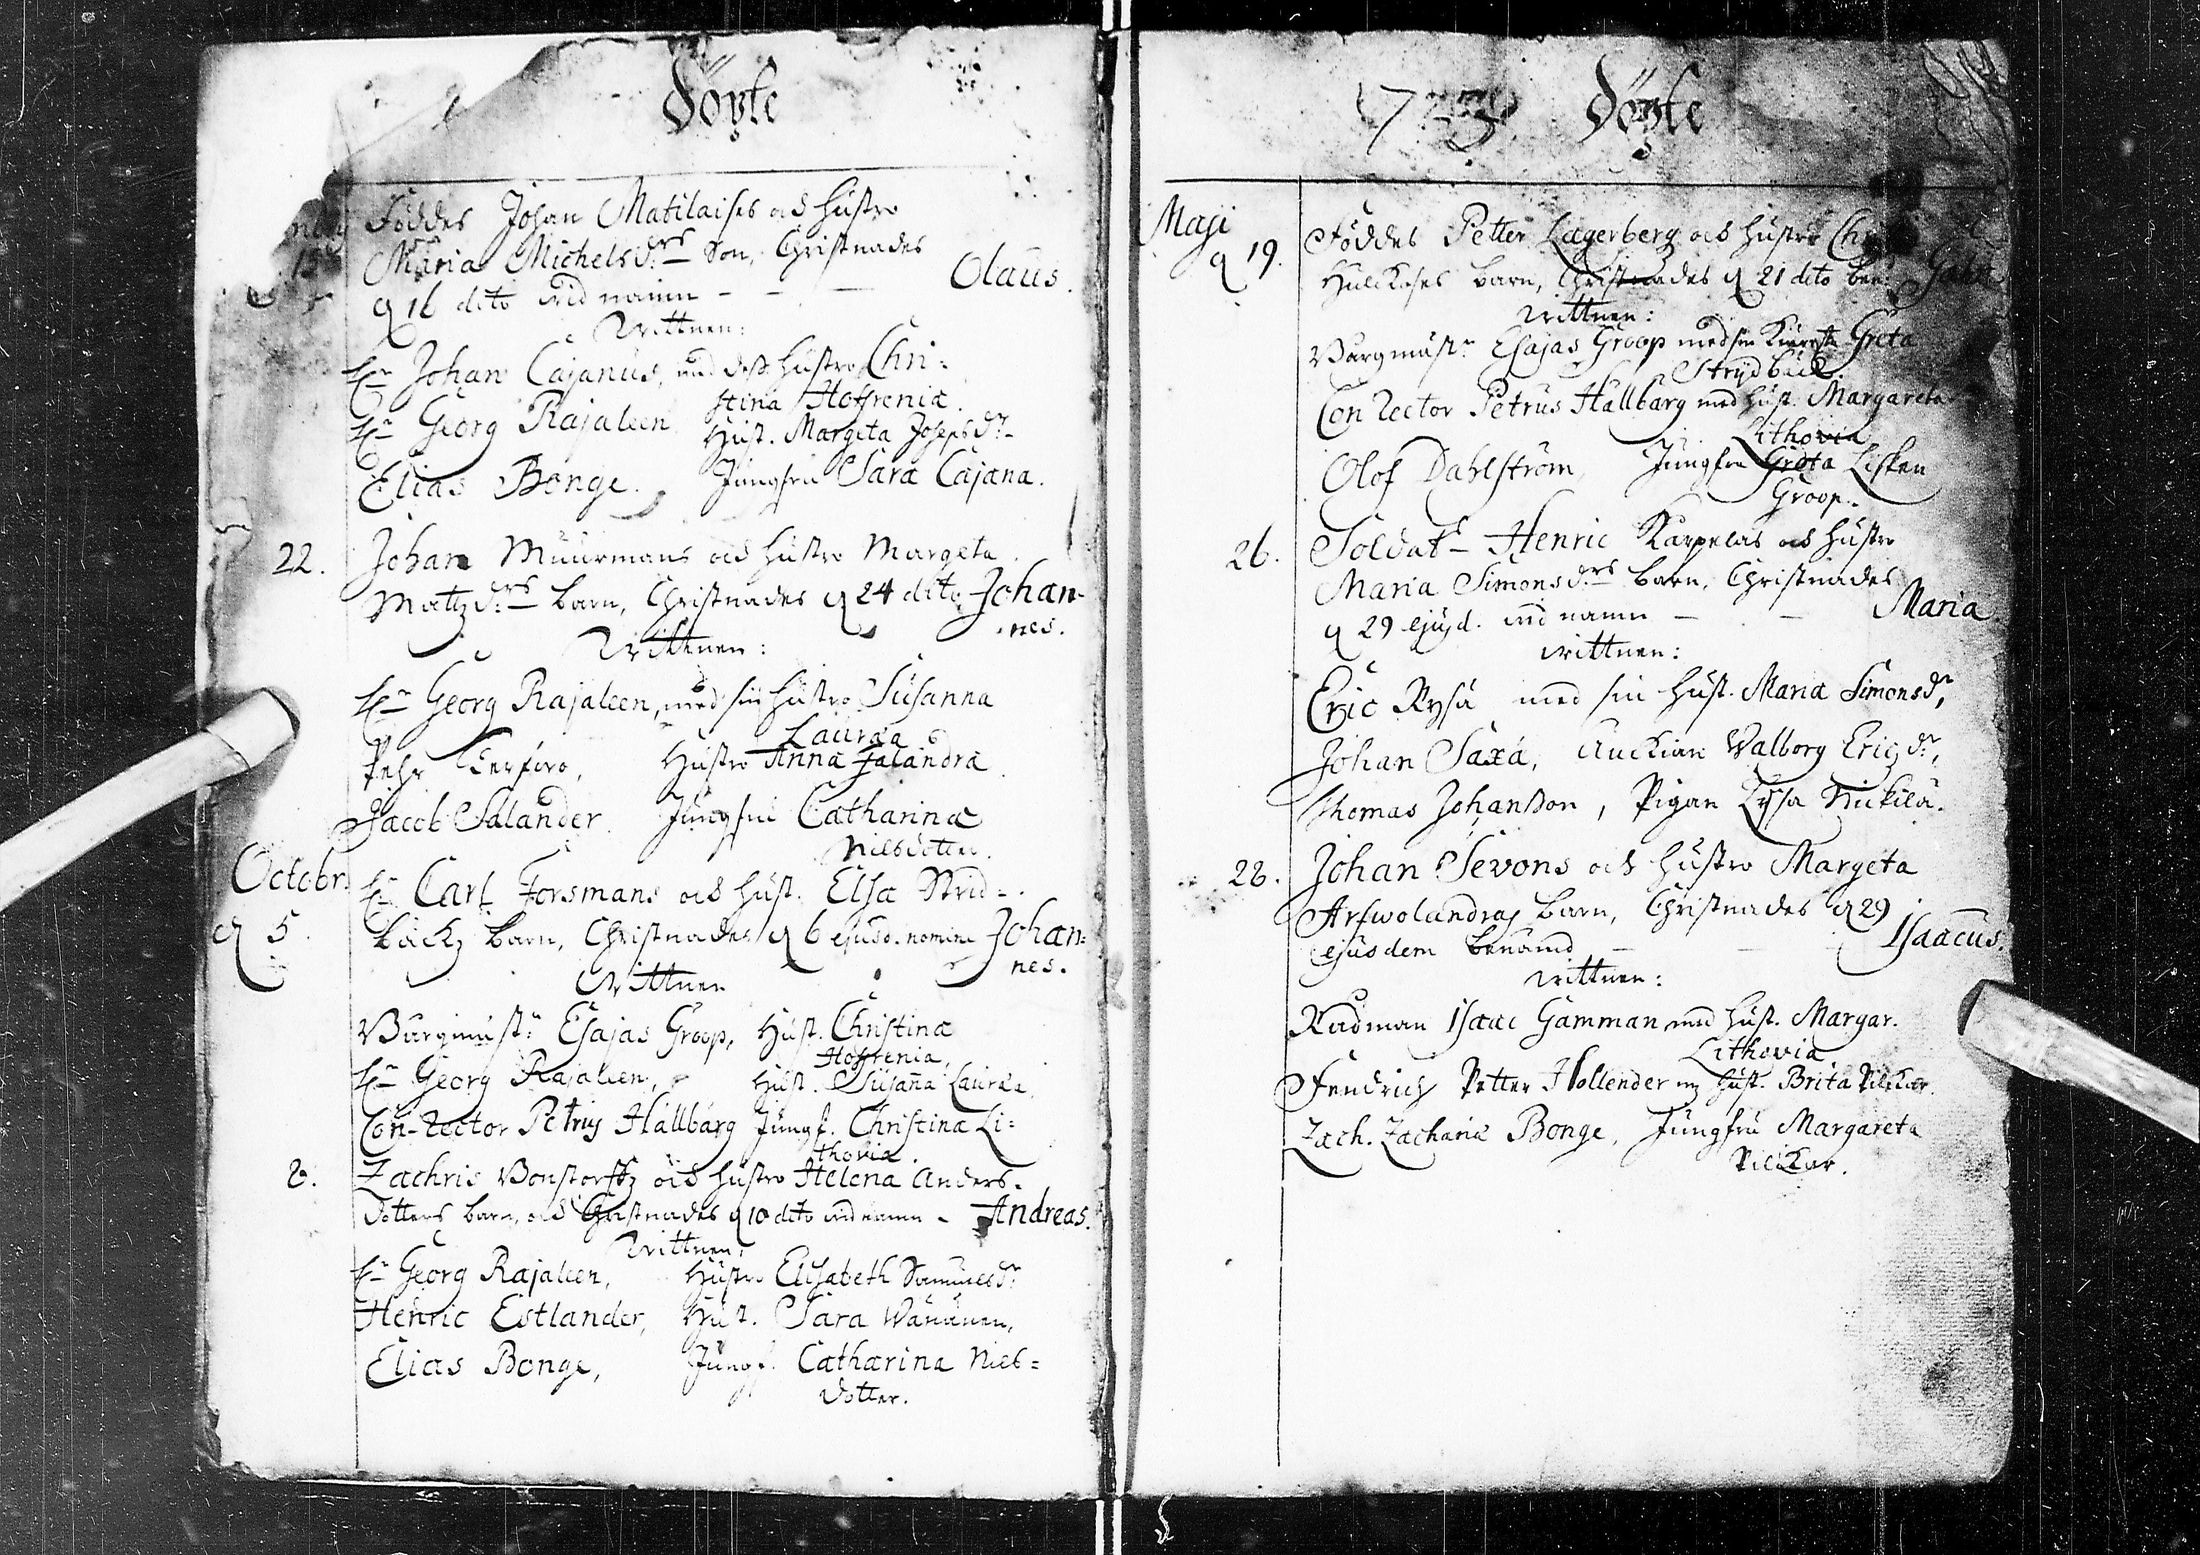 Döpte
Föddes Johan Matilaises och hustro
Maria Michelsd:rs Son, Christnades
d 16 dito vid namn - - - Olaus.
Wittnen:
Hr Johan Cajanus, med dess hustro Chri=
stina Hoffrenia.
Hr Georg Rajaleen Hust. Margeta Josephsdr
Elias Bonge. Jungfru Sara Cajana.
22. Johan Muurmans och hustro Margeta
Matzd:rs barn, Christnades d 24 dito Johan-
nes.
Wittnen:
Hr Georg Rajaleen, med sin hustro Susanna
Lauræa
Pehr Hustro Anna Falandra
Jacob Salander. Jungfru Catharina
Nilsdotter.
Octobr.
d 5. Hr Carl Forsmans och hust. Elsa Strid=
bäckz barn, Christnades d 6 ejusd. nomine Johan=
nes.
Wittnen
Burgmäst:r Esajas Groop, Hust. Christina
Hoffrenia,
Hr Georg Rajaleen, Hust. Susaña Lauræa
Con-Rector Petrus Hällbärg Jungf. Christina Li=
thovia.
8. Zachris Bonstorffz och hustro Helena Anders-
dotters barn, och Christnades d 10 dito vid namn - Andreas.
Wittnen:
Hr Georg Rajaleen, Hustro Elisabeth Samuelsdr
Henric Estlander, Hust. Sara Wänänen,
Elias Bonge, Jungf. Catharina Nils=
dotter.
1723 Döpte
Maji
d 19. Föddes Petter Lagerberg och hustro
Hulckoses barn, Christnades d 21 dito
Wittnen:
Burgmäst:r Esajas Groop med sin Käresta Greta
Strydbäck.
Con Rector Petrus Hällbärg med hust. Margareta
Lithovia
Olof Dahlström, Jungfru Greta Lisken
Groop.
26. Soldat Henric Karpelas och hustro
Maria Simonsd:rs barn, Christnades
d 29 ejusd. vid namn - - Maria
Wittnen:
Eric Rysä med sin hust. Maria Simonsdr,
Johan Saxa, Änckian Walborg Ericzdr,
Thomas Johansson, Pigan Lysa Nickilä.
28. Johan Sevons och hustro Margeta
Arfwolandras barn, Christnades d 29
ejusdem benämd - - Isaacus.
Wittnen:
Rådman Isaac Gamman med hust. Margar.
Lithovia
Fendrich Petter Hollender m hust. Brita Pilckar.
Zach. Zachariæ Bonge, Jungfru Margareta
Pilckar.